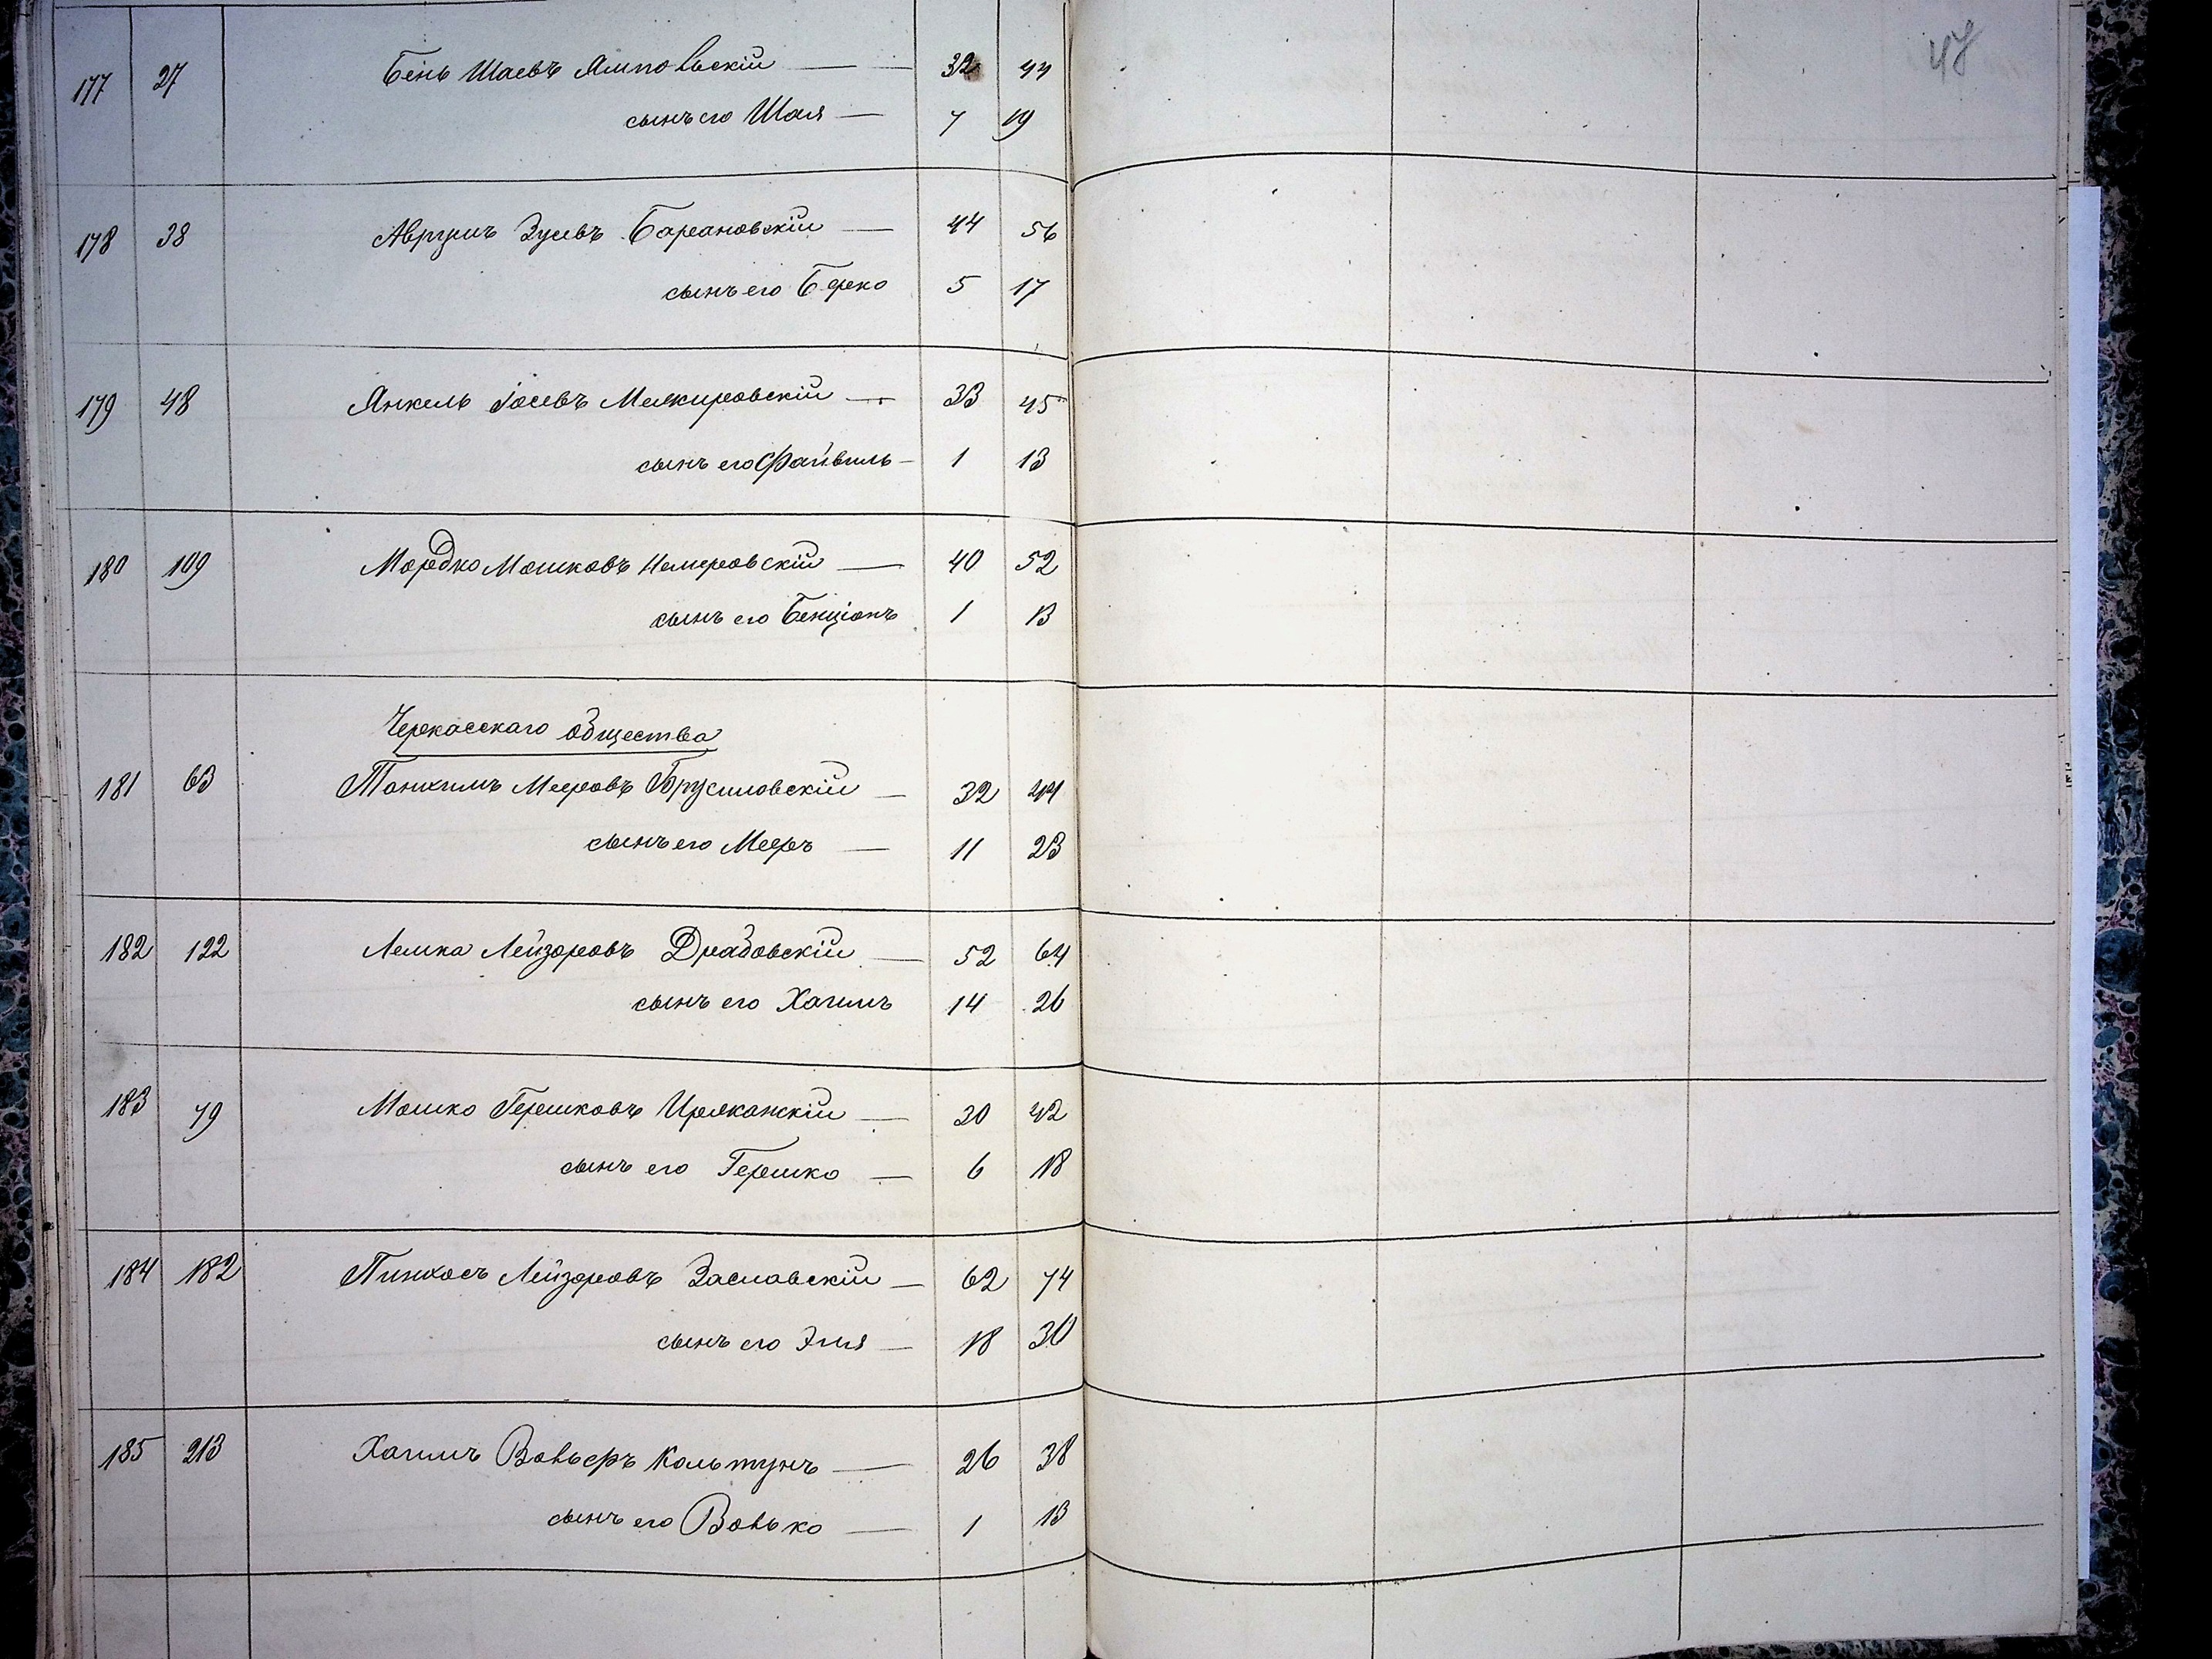 47
177 27 Бень Шаевъ Ямпольскій — 32 44
сынъ его Шая — 7 19
178 38 Аврумъ Зусевъ Барановскій — 44 56
сынъ его Берко 5 17
179 48 Янкель Іосевъ Межировскій — 33 45
сынъ его Файвель — 1 13
180 109 Мордко Мошковъ Немировскій — 40 52
сынъ его Бенціонъ 1 13
Черкасскаго общества
181 63 Танхимъ Мееровъ Брусиловскій — 32 44
сынъ его Мееръ — 11 23
182 122 Лемка Лейзоровъ Драбовскій — 52 64
сынъ его Хаимъ 14 26
183 79 Мошко Гершковъ Иржканскій — 30 42
сынъ его Гершко — 6 18
184 182 Пинхосъ Лейзоровъ Заславскій — 62 74
сынъ его Эля — 18 30
185 213 Хаимъ Вольфъ Кольтунъ — 26 38
сынъ его Волько — 1 13